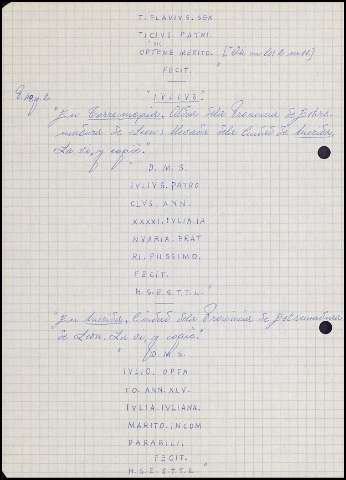 T. FLAVIVS. SEX
TICIVS. PATRI.
OPTENE MERITO.
FECIT. "
"IVLIVS"
"En Torremegia, Aldea dela Provincia de Estre-
madura de Leon; llevada dela Ciudad de Merida,
La vi, y copie."
"D. M. S.
IVLIVS. PATRO
CLVS. ANN.
XXXXI. IVLIA. IA
NVARIA. FRAT
RI. PIISSIMO.
FECIT.
H. S. E. S. T. T. L. "
"En Merida, Ciudad dela Provincia de Estremadura
de Leon. La vi, y copie."
"D. M. S.
IVLIO. OPTA
TO. ANN. XLV.
IVLIA. IVLIANA.
MARITO. INCOM
PARABILI.
FECIT.
H. S. E. S. T. T. L "